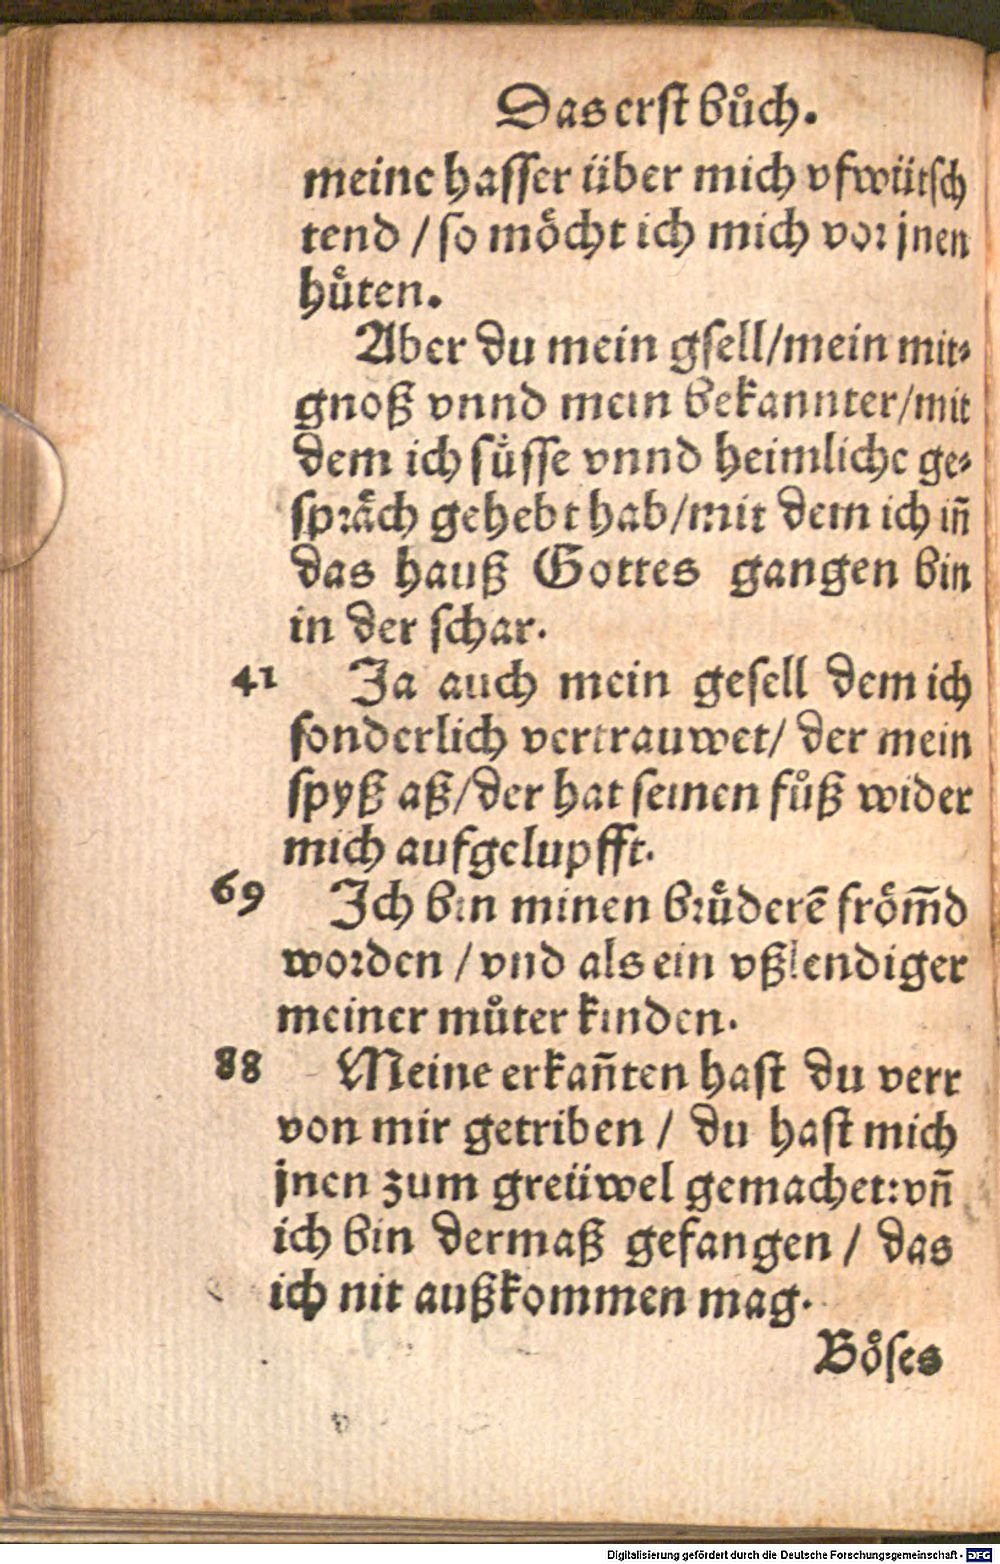 Das erst bůch.
meine hasser über mich vfwütsch
tend / so moͤcht ich mich vor jnen
huͤten.
Aber du mein gsell/mein mit⸗
gnoß vnnd mein bekannter/mit
dem ich suͤsse vnnd heimliche ge⸗
spraͤch gehebt hab/mit dem ich iñ
das hauß Gottes gangen bin
in der schar.
41 Ja auch mein gesell dem ich
sonderlich vertrauwet/ der mein
spyß aß/der hat seinen fůß wider
mich aufgelupfft.
69 Ich bin minen bruͤderē froͤm̄d
worden / vnd als ein vßlendiger
meiner můter kinden.
88 Meine erkañten hast du verr
von mir getriben / du hast mich
jnen zum greüwel gemachet:vñ
ich bin dermaß gefangen / das
ich nit außkommen mag.
Boͤses
Digitalisierung gefördert durch die Deutsche Forschungsgemeinschaft - DFG